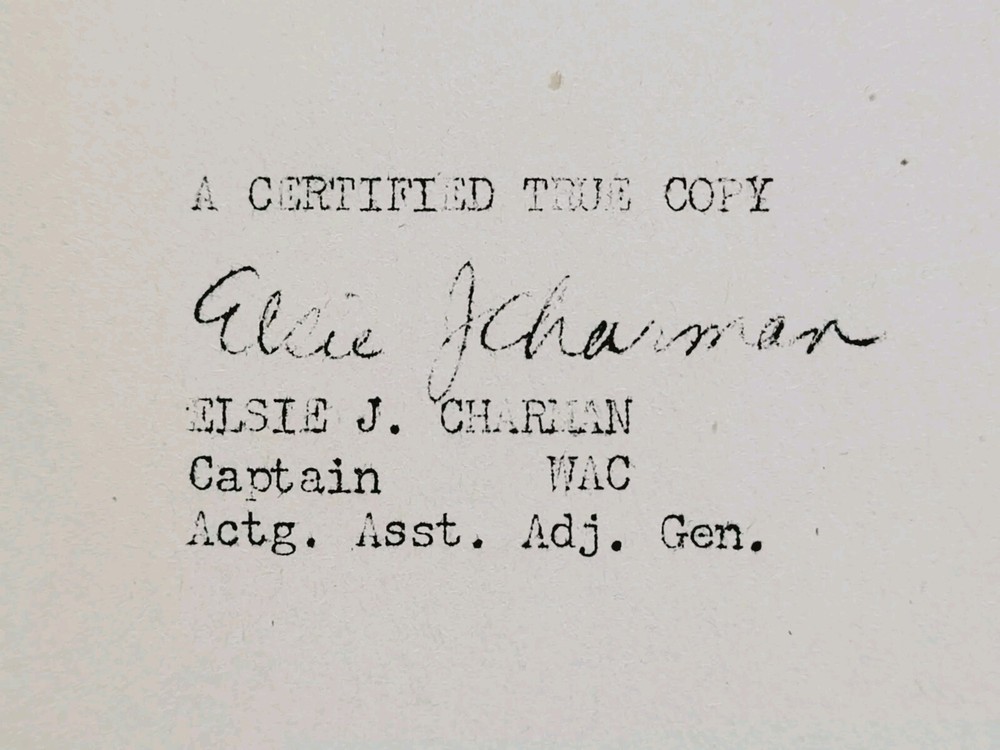 A CERTIFIED TRUE COPY
Elsie J Charman
ELSIE J. CHARMAN
Captain WAC
Actg. Asst. Adj. Gen.